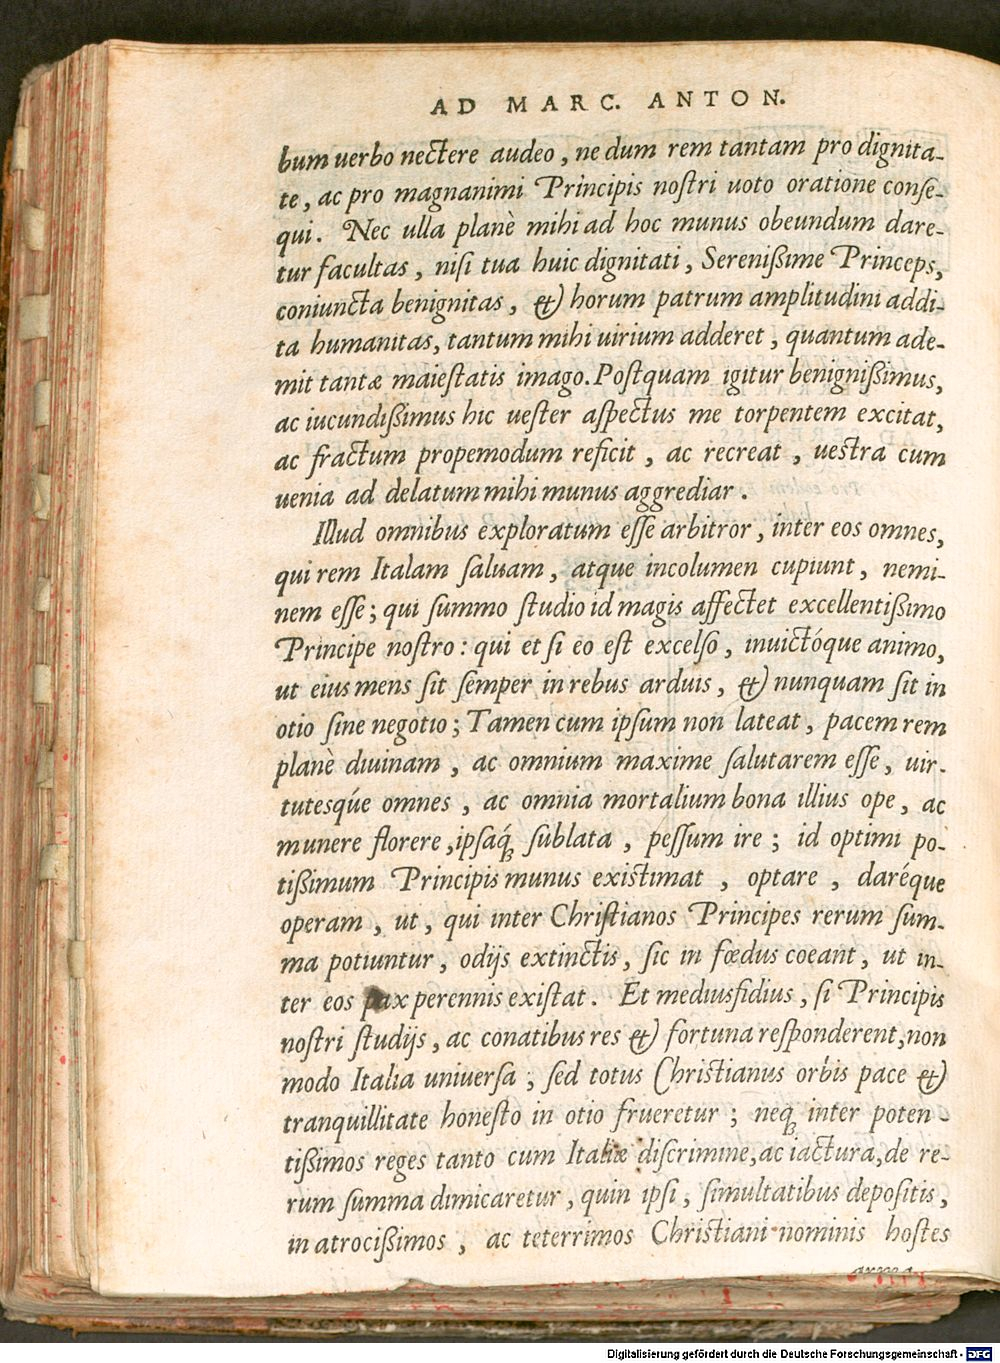 AD MARC. ANTON.
bum uerbo nectere audeo, ne dum rem tantam pro dignita-
te, ac pro magnanimi Principis noſtri uoto oratione conſe-
qui. Nec ulla planè mihi ad hoc munus obeundum dare-
tur facultas, niſi tua huic dignitati, Sereniſſime Princeps,
coniuncta benignitas, & horum patrum amplitudini addi-
ta humanitas, tantum mihi uirium adderet, quantum ade-
mit tantæ maieſtatis imago. Poſtquam igitur benigniſſimus,
ac iucundiſſimus hic ueſter aſpectus me torpentem excitat,
ac fractum propemodum reficit, ac recreat, ueſtra cum
uenia ad delatum mihi munus aggrediar.
Illud omnibus exploratum eſſe arbitror, inter eos omnes,
qui rem Italam ſaluam, atque incolumen cupiunt, nemi-
nem eſſe; qui ſummo ſtudio id magis affectet excellentiſſimo
Principe noſtro: qui et ſi eo eſt excelſo, inuictóque animo,
ut eius mens ſit ſemper in rebus arduis, & nunquam ſit in
otio ſine negotio; Tamen cum ipſum non lateat, pacem rem
planè diuinam, ac omnium maxime ſalutarem eſſe, uir-
tutesq́ue omnes, ac omnia mortalium bona illius ope, ac
munere florere, ipſaq́ꝫ ſublata, peſſum ire; id optimi po-
tiſſimum Principis munus existimat, optare, daréque
operam, ut, qui inter Chriſtianos Principes rerum ſum-
ma potiuntur, odijs extinctis, ſic in fœdus coeant, ut in-
ter eos pax perennis exiſtat. Et mediusfidius, ſi Principis
noſtri ſtudijs, ac conatibus res & fortuna reſponderent, non
modo Italia uniuerſa; ſed totus Chriſtianus orbis pace &
tranquillitate honeſto in otio frueretur; neqꝫ inter poten-
tiſſimos reges tanto cum Italiæ diſcrimine, ac iactura, de re-
rum ſumma dimicaretur, quin ipſi, ſimultatibus depoſitis,
in atrociſſimos, ac teterrimos Chriſtiani nominis hoſtes
Digitalisierung gefördert durch die Deutsche Forschungsgemeinschaft - DFG